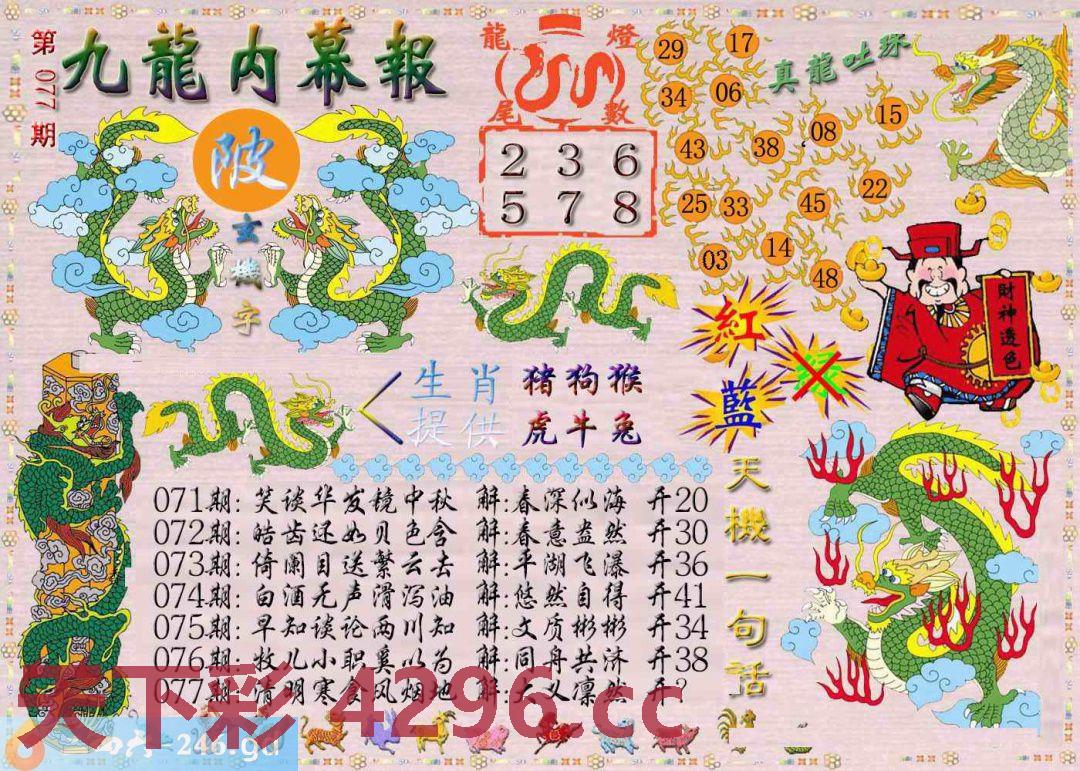 第077期
九龍内幕報
陂
玄機字
龍燈
尾數
2 3 6
5 7 8
真龍吐珠
29 17
34 06
43 38 08 15
25 33 45 22
03 14 48
紅
藍
绿
財神透色
生肖 猪狗猴
提供 虎牛兔
天機一句話
071期: 笑谈华发镜中秋 解:春深似海 开20
072期: 皓齿还如贝色含 解:春意盎然 开30
073期: 倚阑目送繁云去 解:平湖飞瀑 开36
074期: 白酒无声滑泻油 解:悠然自得 开41
075期: 早知谈论两川知 解:文质彬彬 开34
076期: 牧儿小职奚以为 解:同舟共济 开38
077期: 清明寒食风烟地 解:大义凛然 开?
天下彩 4296.cc
246.gd